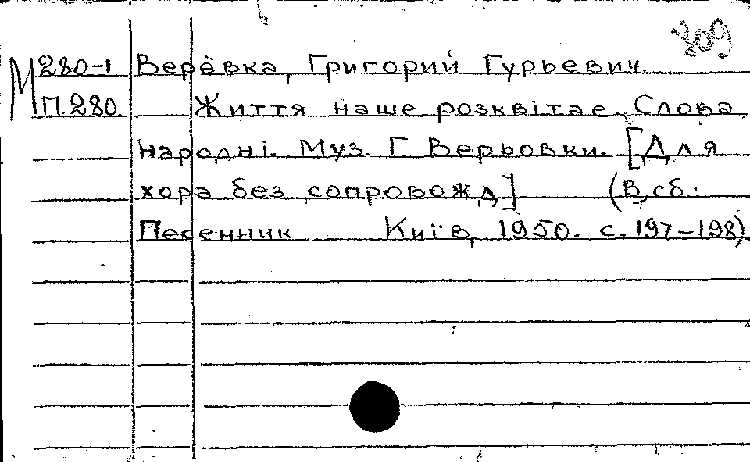 309
М 280-1 Верёвка, Григорий Гурьевич
П.280. Життя наше розквітає. Слова
народні. Муз. Г. Верьовки. [Для
хора без сопровожд.] (В сб.:
Песенник Київ, 1950. с. 197-198)